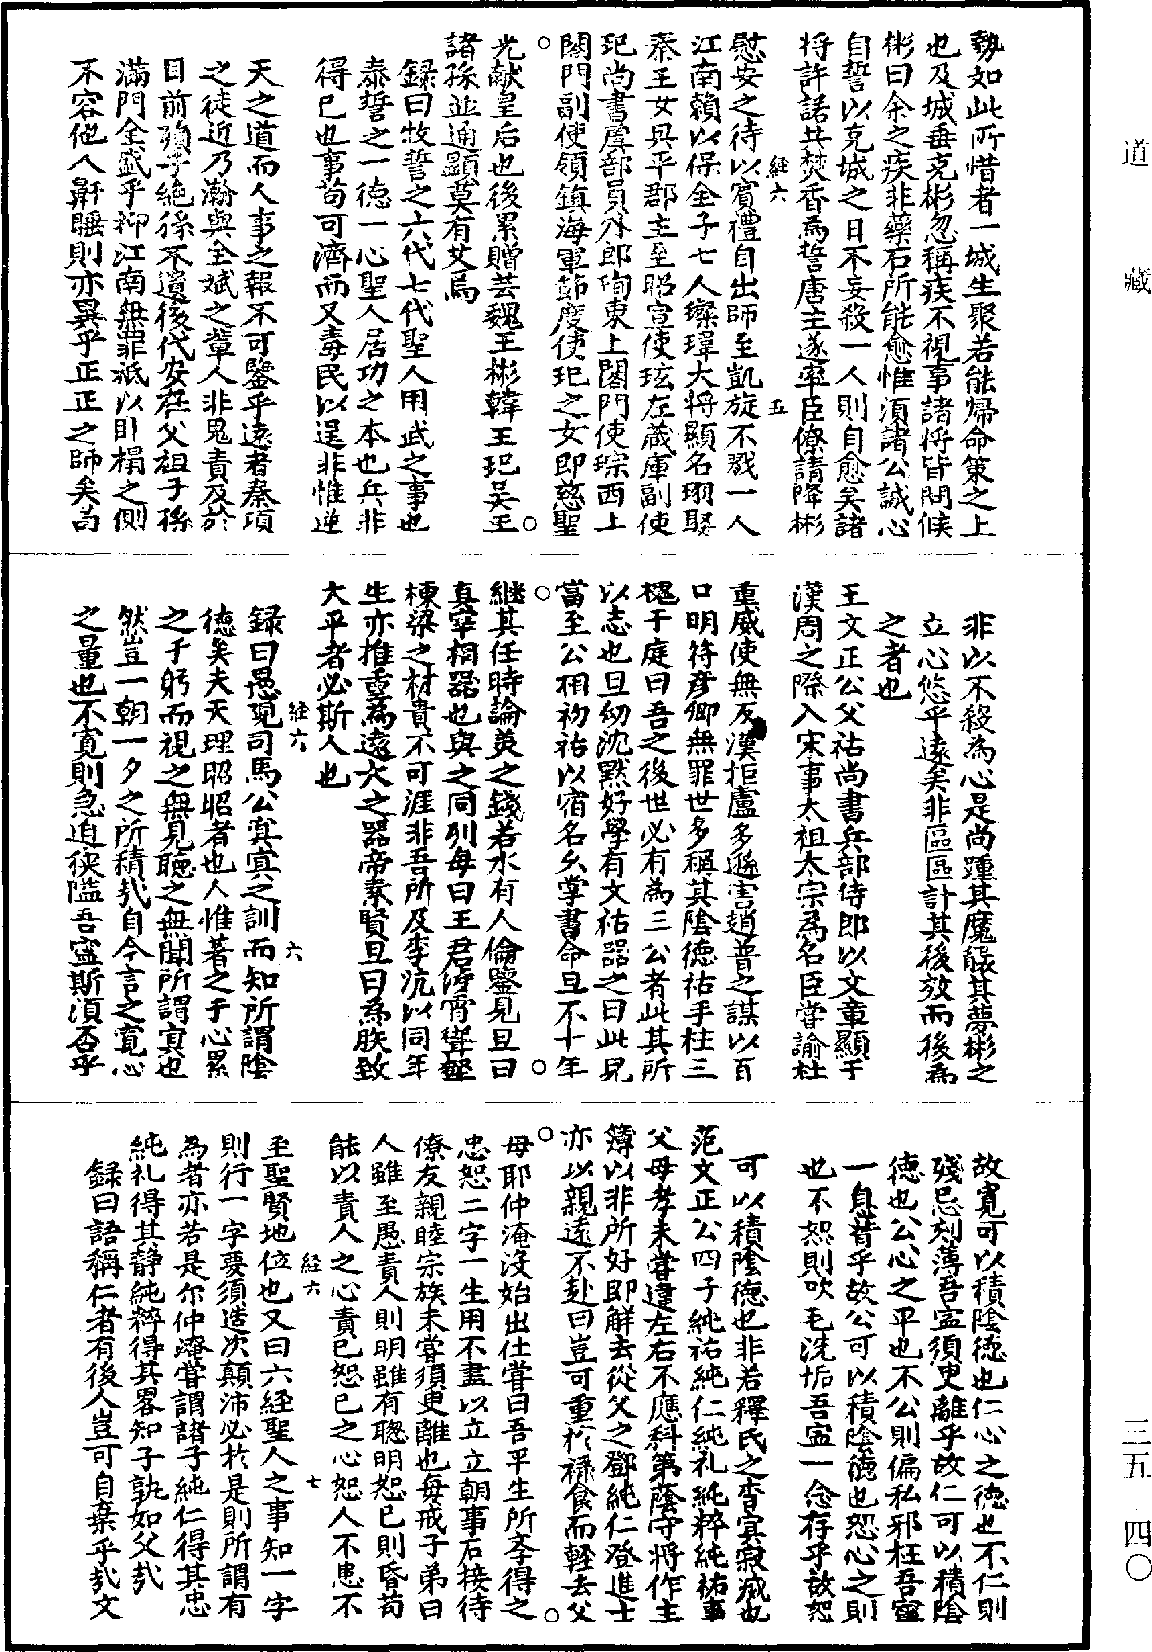 勢如此所惜者一城生聚若能歸命策之上
也及城垂克彬忽稱疾不視事諸將皆問候
彬曰余之疾非藥石所能愈惟須諸公誠心
自誓以克城之日不妄殺一人則自愈矣諸
將許諾共焚香為誓唐主遂率臣僚請降彬
經六 五
慰安之待以賓禮自出師至凱旋不戮一人
江南賴以保全子七人璨瑋大將顯名珝娶
秦王女興平郡主至昭宣使玹左藏庫副使
玘尚書虞部員外郎珣東上閣門使琮西上
閤門副使領鎮海軍節度使玘之女即慈聖
光献皇后也後累贈芸魏王彬韓王玘吳王
諸孫並通顯莫有艾焉
録曰牧誓之六代七代聖人用武之事也
泰誓之一德一心聖人居功之本也兵非
得已也事苟可濟而又毒民以逞非惟逆
天之道而人事之報不可鑒乎遠者秦項
之徒近乃瀚與全斌之輩人非鬼責及於
目前殞子絶孫不遺後代安在父祖子孫
滿門全盛乎抑江南無罪祗以卧榻之側
不容他人鼾睡則亦異乎正正之師矣苟
非以不殺為心是尚踵其魔餘其夢彬之
立心悠乎遠矣非區區計其後效而後為
之者也
王文正公父祐尚書兵部侍郎以文章顯于
漢周之際入宋事太祖太宗為名臣嘗諭杜
重威使無反漢拒盧多遜害趙普之謀以百
口明符彦卿無罪世多稱其陰德祐手柱三
槐于庭曰吾之後世必有為三公者此其所
以志也旦幼沈默好學有文祐器之曰此兒
當至公相初祐以宿名久掌書命旦不十年
継其任時論美之錢若水有人倫鑒見旦曰
真宰相器也與之同列每曰王君凌霄聳壑
棟梁之材貴不可涯非吾所及李沆以同年
生亦推重為遠大之器帝素賢旦曰為朕致
太平者必斯人也
經六 六
録曰愚寛司馬公寅寅之訓而知所謂陰
德矣夫天理昭昭者也人惟著之于心累
之于躬而視之無見聽之無聞所謂寅也
然豈一朝一夕之所積哉自今言之寛心
之量也不寛則急迫狹隘吾寧斯須否乎
故寛可以積陰德也仁心之德也不仁則
殘忌刻薄吾寧須臾離乎故仁可以積陰
德也公心之平也不公則偏私邪枉吾寧
一息昔乎故公可以積陰德也恕心之則
也不恕則吹毛洗垢吾寧一念存乎故恕
可以積陰德也非若釋氏之杳冥寂滅也
范文正公四子純祐純仁純礼純粹純祐事
父母孝未嘗違左右不應科第蔭守將作主
簿以非所好即解去從父之鄧純仁登進士
亦以親遠不赴曰豈可重於禄食而輕去父
母耶仲淹没始出仕嘗曰吾平生所学得之
忠恕二字一生用不盡以立立朝事石接待
僚友親睦宗族未嘗須臾離也每戒子弟曰
人雖至愚責人則明雖有聰明恕已則昏苟
能以責人之心責已恕已之心恕人不患不
經六 七
至聖賢地位也又曰六經聖人之事知一字
則行一字要須造次顛沛必於是則所謂有
為者亦若是尔仲淹嘗謂諸子純仁得其忠
純礼得其静純粹得其畧知子孰如父哉
録曰語稱仁者有後人豈可自棄乎哉文
道藏
三五・四〇